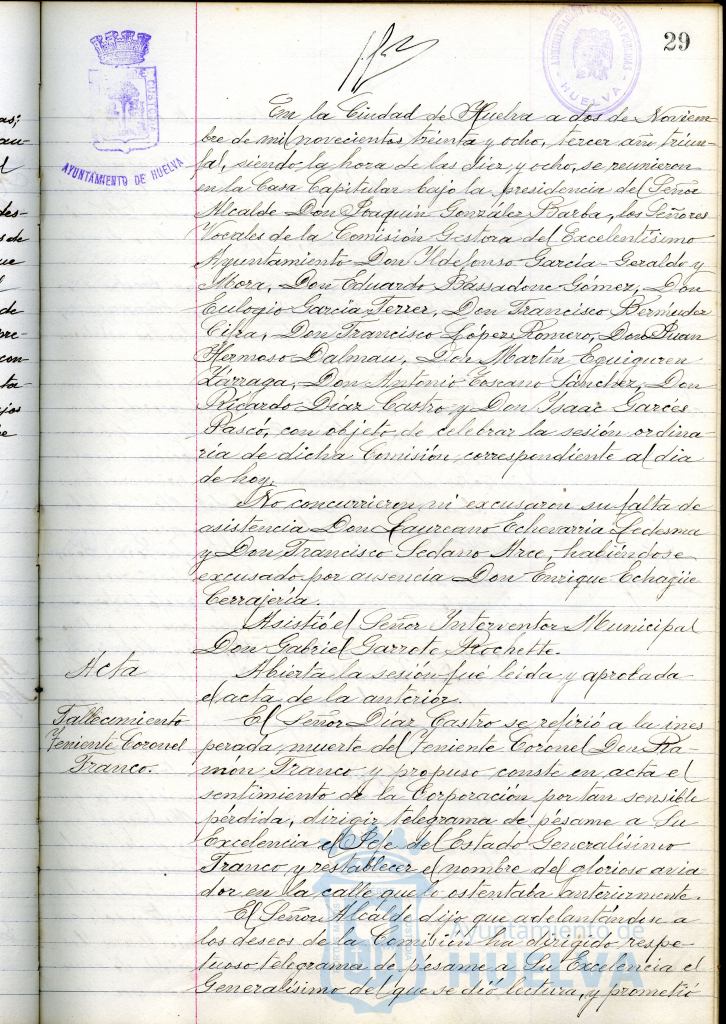 29
AYUNTAMIENTO DE HUELVA
HUELVA
En la Ciudad de Huelva a dos de Noviem-
bre de mil novecientos treinta y ocho, tercer año triun-
fal, siendo la hora de las diez y ocho, se reunieron
en la Casa Capitular bajo la presidencia del Señor
Alcalde Don Joaquín González Barba, los Señores
Vocales de la Comisión Gestora del Excelentísimo
Ayuntamiento Don Ildefonso García-Geraldo y
Mora, Don Eduardo Bassadone Gómez, Don
Eulogio García Ferrer, Don Francisco Bermúdez
Cifra, Don Francisco López Romero, Don Juan
Hermoso Dalmau, Don Martín Eguiguren
Lárraga, Don Antonio Toscano Sánchez, Don
Ricardo Díaz Castro y Don Isaac Garcés
Pascó, con objeto de celebrar la sesión ordina-
ria de dicha Comisión, correspondiente al dia
de hoy.
No concurrieron, ni excusaron su falta de
asistencia Don Laureano Echevarría Ledesma
y Don Francisco Sedano Arce, habiéndose
excusado por ausencia Don Enrique Echagüe
Cerrajería.
Asistió el Señor Interventor Municipal
Don Gabriel Garrote Rochette.
Acta
Abierta la sesión fué leída y aprobada
el acta de la anterior.
Fallecimiento
Teniente Coronel
Franco.
El Señor Díaz Castro se refirió a la ines
perada muerte del Teniente Coronel Don Ra-
món Franco y propuso conste en acta el
sentimiento de la Corporación por tan sensible
pérdida, dirigir telegrama de pésame a Su
Excelencia el Jefe del Estado Generalísimo
Franco y restablecer el nombre del glorioso avia
dor en la calle que lo ostentaba anteriormente.
El Señor Alcalde dijo que adelantándose a
los deseos de la Comisión ha dirigido respe-
tuoso telegrama de pésame a Su Excelencia el
Generalísimo del que se dió lectura, y prometió
Ayuntamiento de
HUELVA